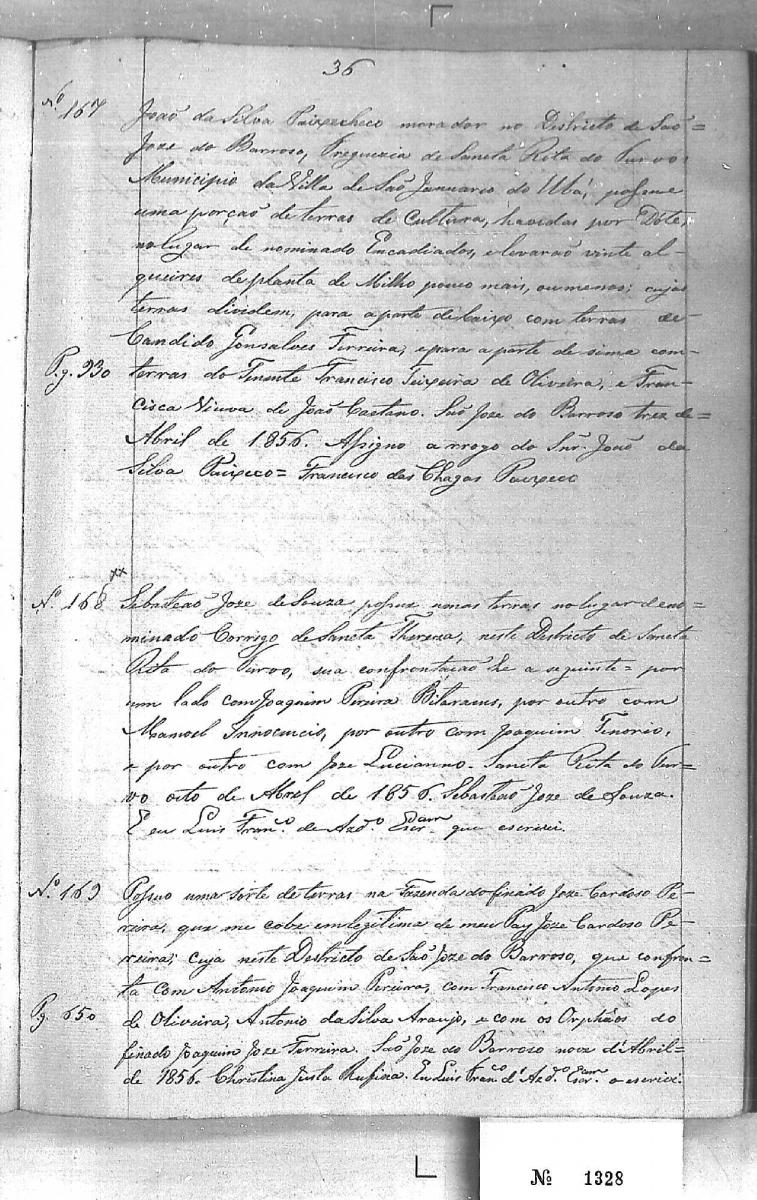 36
Nº 167
João da Silva Paixecheco morador no Districto de São=
Joze do Barrozo, Freguezia de Sancta Rita do Turvo
Municipio da Villa de São Januario do Ubá, possue
uma porção de terras de Cultura, havidas por Dóte,
no lugar de nominado Encadiados, e levarão vinte al-
queires de planta de Milho pouco mais, ou menos; cujas
terras dividem, para a parte de baixo com terras de
Candido Gonsalves Ferreira, e para a parte de sima com
Pg. 930
terras do Tenente Francisco Teixeira de Oliveira, e Fran-
cisca Viuva de João Caetano. São Joze do Barroso trez de=
Abril de 1856. Assigno a rrogo do Snr. João da
Silva Paixeco= Francisco das Chagas Paixeco
xx
Nº 168
Sebasteaõ Joze de Souza, possue umas terras no lugar deno=
minado Corrigo de Sancta Thereza, neste Districto de Sancta
Rita do Turvo, sua confrontacaõ he a seguinte= por
um lado com Joaquim Pereira , por outro com
Manoel Innocencio, por outro com Joaquim Tenorio,
e por outro com Joze Lucianno. Sancta Rita do Tur-
vo oito de Abril de 1856. Sebasteaõ Joze de Souza.
E eu Luis Fran.co de Azd.o Escr.am que escrivi.
Nº 169
Possuo uma sorte de terras na Fazenda do finado Joze Cardoso Pe-
reira, que me cobe em legitima de meu Pay Joze Cardoso Pe-
reira; cuja neste Destricto de São Joze do Barroso, que confron=
ta com Antonio Joaquim Pereira, com Francisco Antonio Lopes
Pg. 650
de Oliveira, Antonio da Silva Araujo, e com os Orphãos do
finado Joaquim Joze Ferreira. São Joze do Barroso nove d'Abril=
de 1856. Christina Justa Rufina. Eu Luis Fran.co d'Azd.o Escr.am o escrivi.
Nº 1328